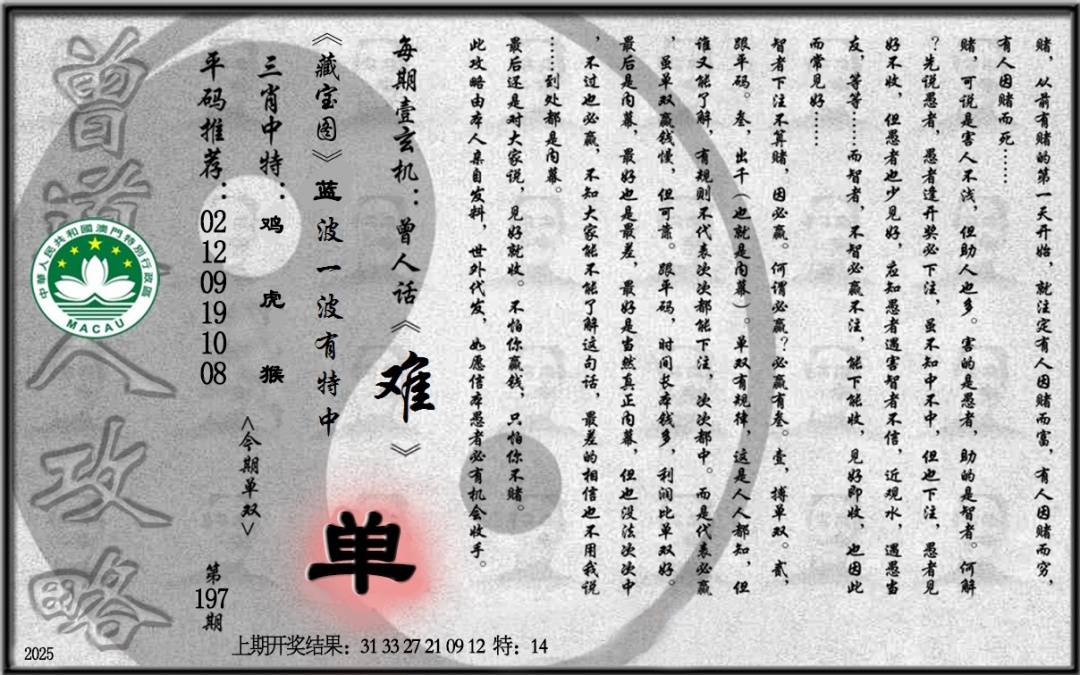 赌，从前有赌的第一天开始，就注定有人因赌而富，有人因赌而穷，
有人因赌而死……
赌，可说是害人不浅，但助人也多。害的是愚者，助的是智者。何解
？先说愚者，愚者逢开奖必下注，虽不知中不中，但也下注，愚者见
好不收，但愚者也少见好，应知愚者遇害智者不信，近观水，遇愚当
友，等等……而智者，不智必赢不注，能下能收，见好即收，也因此
而常见好……
智者下注不算赌，因必赢。何谓必赢？必赢有叁。壹，搏单双。贰，
跟平码。叁，出千（也就是内幕）。单双有规律，这是人人都知，但
谁又能了解，有规则不代表次次都能下注，次次都中。而是代表必赢
，虽单双赢钱慢，但可靠。跟平码，时间长本钱多，利润比单双好。
最后是内幕，最好也是最差，最好是当然真正内幕，但也没法次次中
，不过也必赢，不知大家能不能了解这句话，最差的相信也不用我说
……到处都是内幕。
最后还是对大家说，见好就收。不怕你赢钱，只怕你不赌。
此攻略由本人亲自发料，世外代发，如愿信本愚者必有机会收手。
每期壹玄机：曾人话《难》
《藏宝图》蓝波一波有特中
单
三肖中特：鸡 虎 猴
<今期单双>
平码推荐：02 12 09 19 10 08
第197期
曾道人攻略
中華人民共和國澳門特別行政區
MACAU
2025
上期开奖结果：31 33 27 21 09 12 特：14